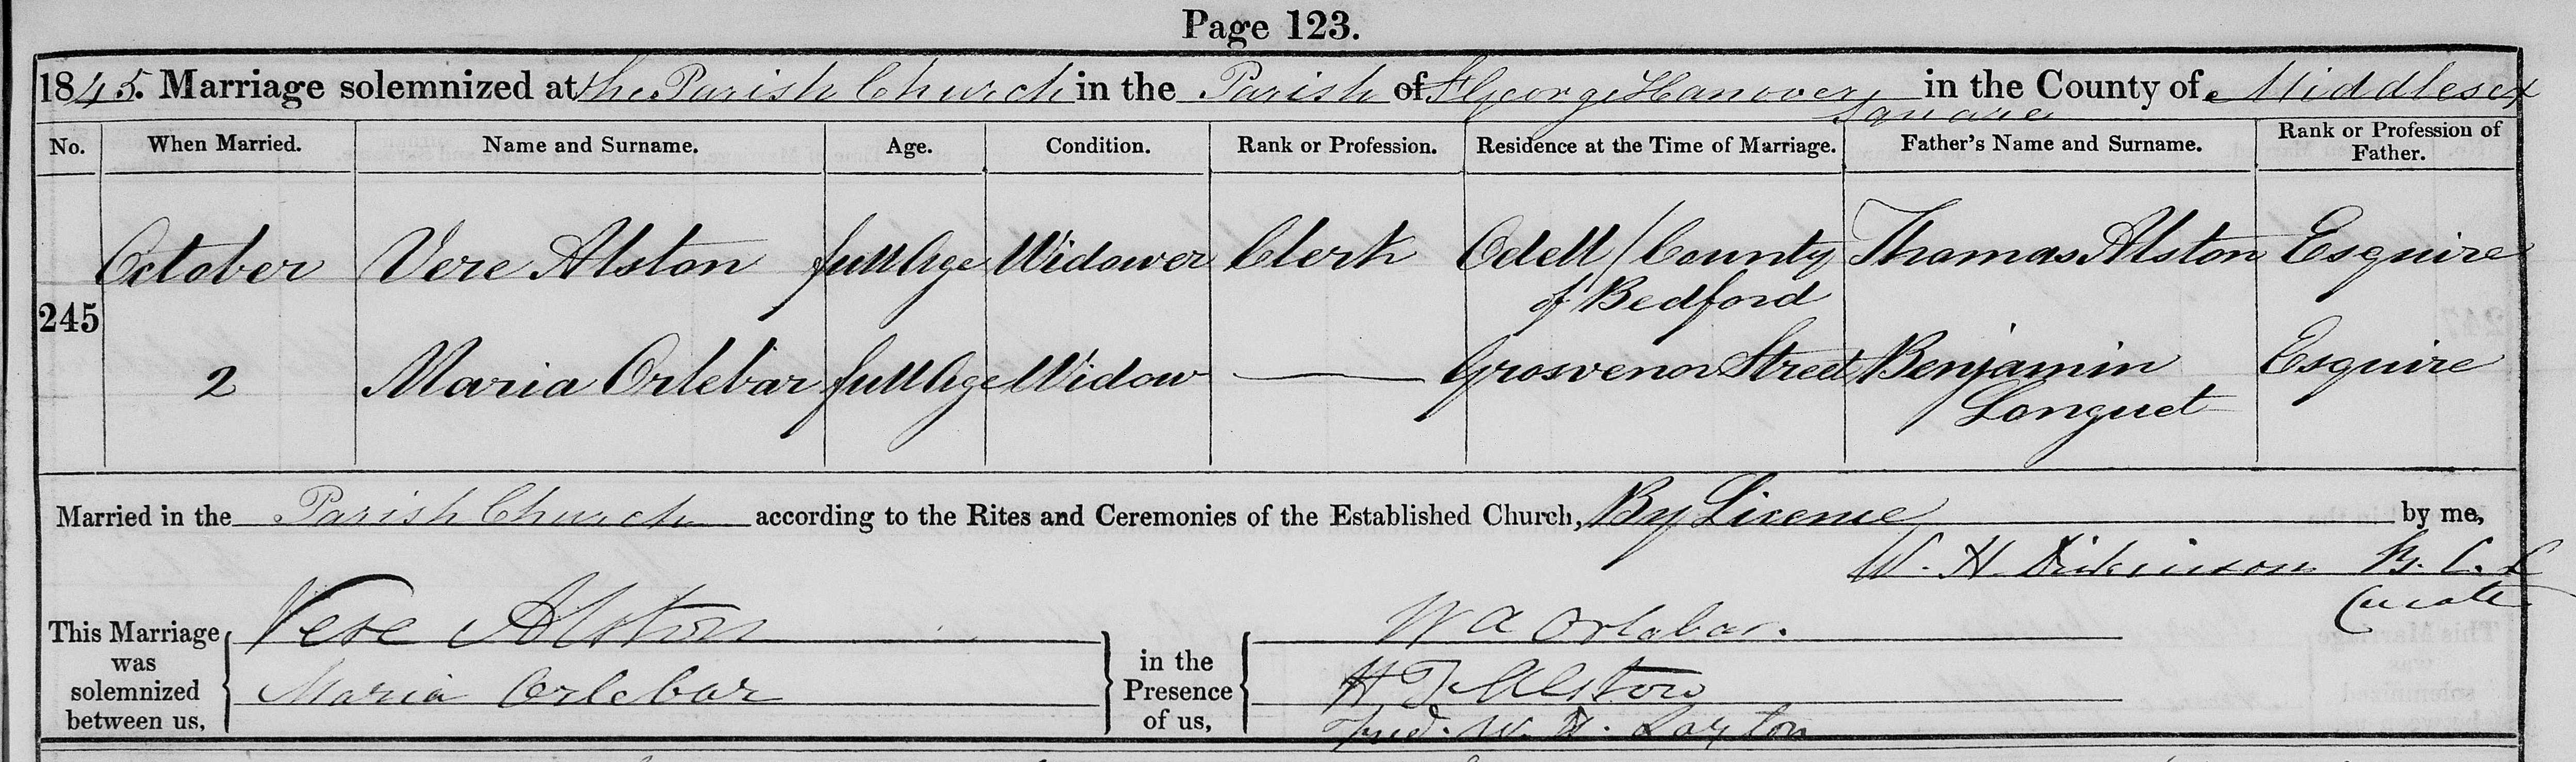 Page 123.
1845. Marriage solemnized at the Parish Church in the Parish of St George Hanover Square in the County of Middlesex
No. When Married. Name and Surname. Age. Condition. Rank or Profession. Residence at the Time of Marriage. Father's Name and Surname. Rank or Profession of Father.
October Vere Alston full Age Widower Clerk Odell / County Thomas Alston Esquire
of Bedford
245
2 Maria Orlebar full Age Widow — Grosvenor Street Benjamin Esquire
Longuet
Married in the Parish Church according to the Rites and Ceremonies of the Established Church, By Licence by me,
W. H. Dickinson B. C. L
Curate
This Marriage was solemnized between us, Vere Alston
Maria Orlebar
in the Presence of us, W A Orlebar.
H T Alston
Fred. W. Layton